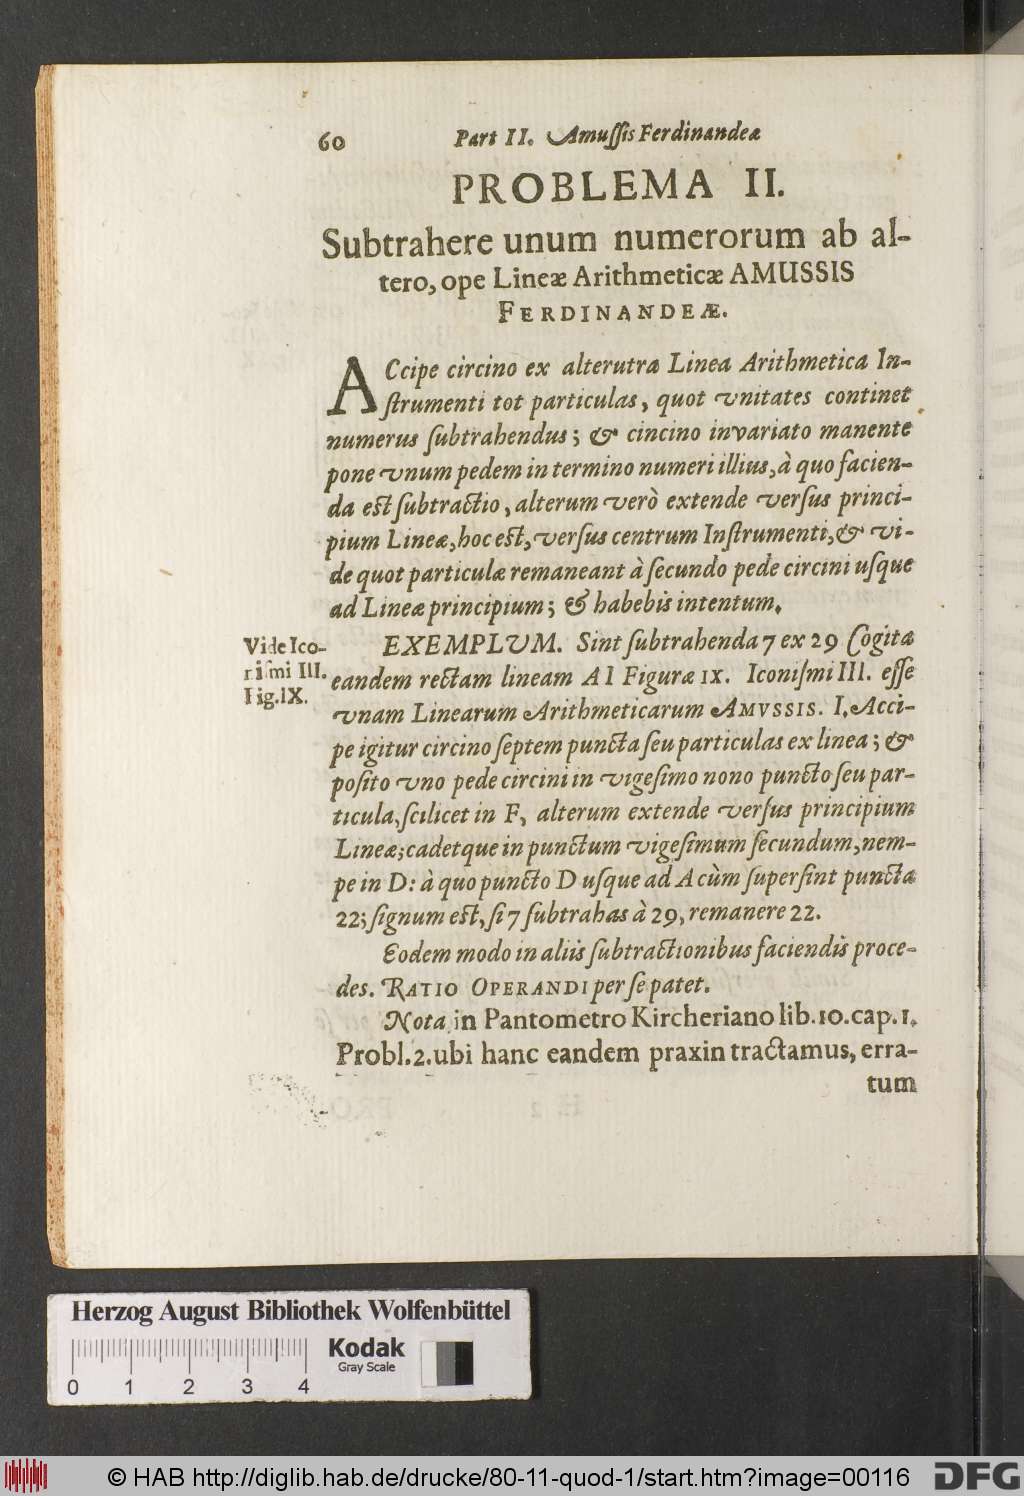 60 Part II. Amussis Ferdinandeæ
PROBLEMA II.
Subtrahere unum numerorum ab al-
tero, ope Lineæ Arithmeticæ AMUSSIS
FERDINANDEÆ.
ACcipe circino ex alterutra Linea Arithmetica In-
ſtrumenti tot particulas, quot vnitates continet
numerus ſubtrahendus; & cincino invariato manente
pone vnum pedem in termino numeri illius, à quo facien-
da eſt ſubtractio, alterum verò extende verſus princi-
pium Lineæ, hoc eſt, verſus centrum Inſtrumenti, & vi-
de quot particulæ remaneant à ſecundo pede circini uſque
ad Lineæ principium; & habebis intentum.
Vide Ico-
riſmi III.
Fig. IX.
EXEMPLVM. Sint ſubtrahenda 7 ex 29 Cogita
eandem rectam lineam A I Figuræ IX. Iconiſmi III. eſſe
vnam Linearum Arithmeticarum AMVSSIS. I. Acci-
pe igitur circino ſeptem puncta ſeu particulas ex linea; &
poſito vno pede circini in vigeſimo nono puncto ſeu par-
ticula, ſcilicet in F, alterum extende verſus principium
Lineæ; cadetque in punctum vigeſimum ſecundum, nem-
pe in D: à quo puncto D uſque ad A cùm ſuperſint puncta
22; ſignum eſt, ſi 7 ſubtrahas à 29, remanere 22.
Eodem modo in aliis ſubtractionibus faciendis proce-
des. RATIO OPERANDI per ſe patet.
Nota in Pantometro Kircheriano lib. 10. cap. 1.
Probl. 2. ubi hanc eandem praxin tractamus, erra-
tum
Herzog August Bibliothek Wolfenbüttel
Kodak
Gray Scale
0 1 2 3 4
© HAB http://diglib.hab.de/drucke/80-11-quod-1/start.htm?image=00116
DFG